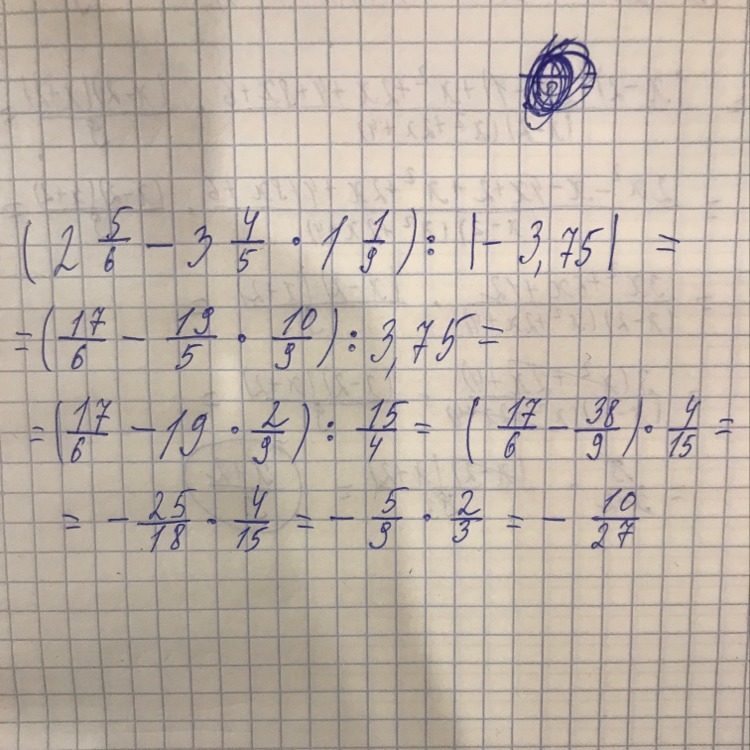 (2 5/6 - 3 4/5 · 1 1/9) : |- 3,75| =
= (17/6 - 19/5 · 10/9) : 3,75 =
= (17/6 - 19 · 2/9) : 15/4 = (17/6 - 38/9) · 4/15 =
= - 25/18 · 4/15 = - 5/9 · 2/3 = - 10/27